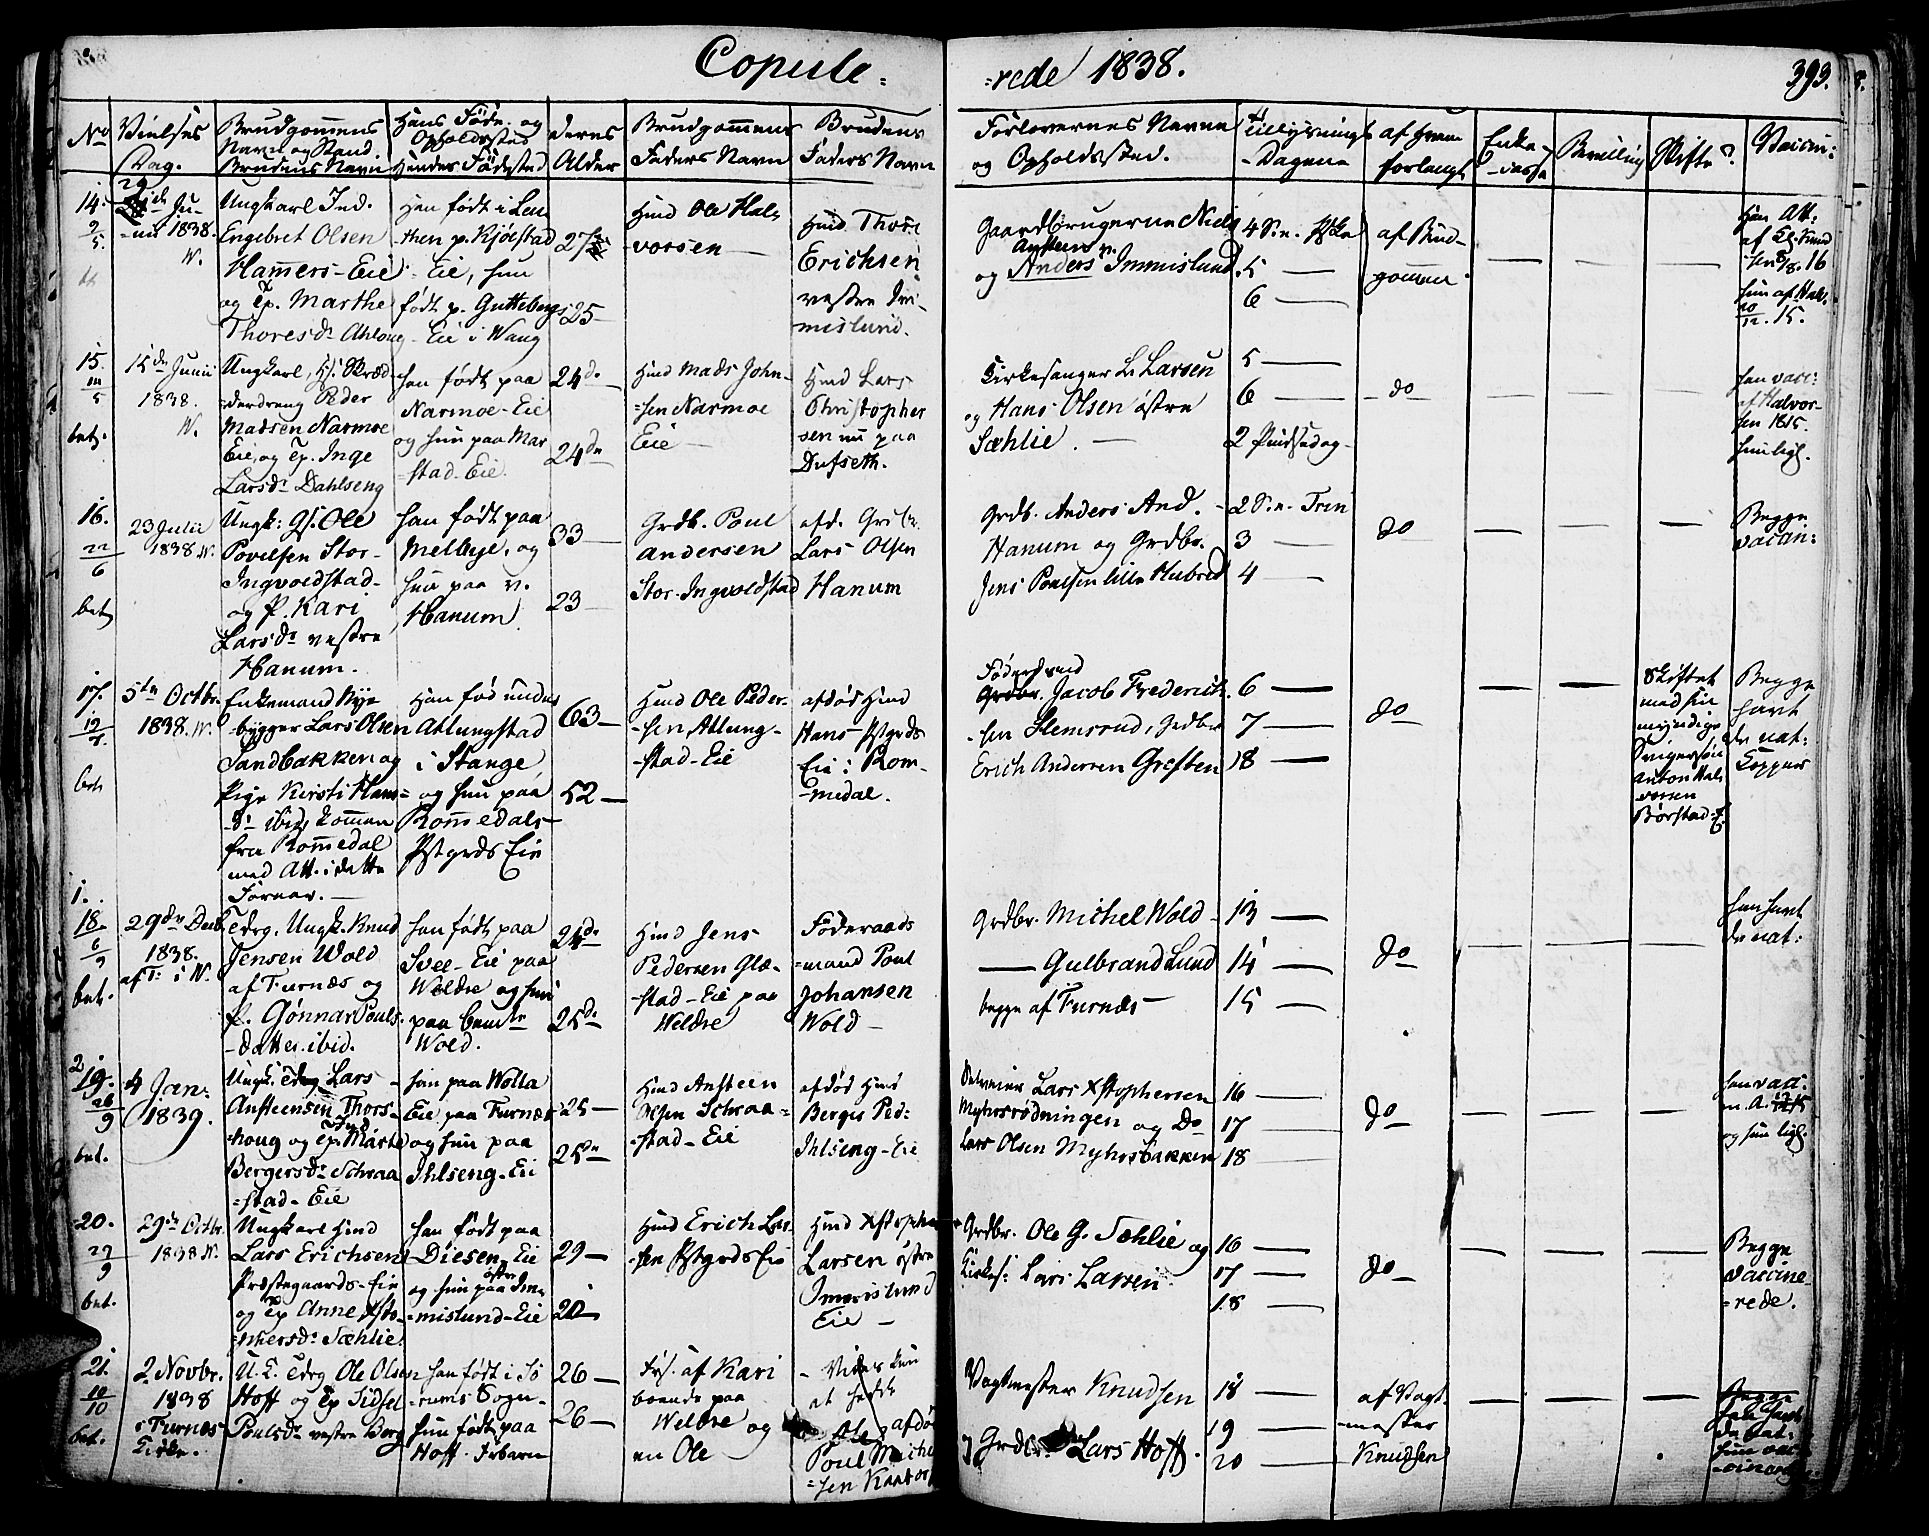 Copule=
=rede 1838.
393.
No
Vielses Dag.
Brudgommens Navn og Stand
Brudens Navn
Hans Føde- og Opholdssted
Hendes Fødested
Deres Alder
Brudgommens Faders Navn
Brudens Faders Navn
Forlovernes Navne og Opholdssted.
Tillysnings-Dagene
af hvem forlangt
Enke-Cassa
Bevilling
Skifte
Vaccin:
14.
9/5
1838.
W.
Ungkarl Ind.
Engebret Olsen
Hamers-Eie
og Ep. Marthe
Thoresdr
Han født i
-then p. Kjølstad
Eie, hun
født p. Gutteberg
Eie i Wang
27
25
Hmd Ole Hal-
vorsen
Hmd Thore
Erichsen
vestre Im-
mislund.
Gaardbrugerne Niels
og Anders Immislund.
4 S. e. Pske
5
6
af Brud-
gommen
Han Att.
hun af Hal.
15.
15.
5
bet.
15de Junii
1838.
W.
Ungkarl,
Peder
Madsen Narmoe
Eie, og Ep. Inge
Larsdr Dahlseng
han født paa
Narmoe-Eie
og hun paa Mar
-stad-Eie.
24de
24de
Hmd Mads John-
=sen Narmoe
Eie
Hmd Lars
Christopher
sen nu paa
Dufseth.
Kirkesanger L. Larsen
og Hans Olsen østre
Sæhlie.
5
6
2 Pindsedag
do
Han vacc:
af Halvor-
sen 1815.
hun ligl.
16.
22/6
bet
23 Julii
1838. W.
Ungk: Gf. Ole
Povelsen Stor-
Ingvoldstad-
og P. Kari
Larsdr vestre
Hanum.
han født paa
Melbye, og
hun paa v.
Hanum
33
23
Grdb. Poul
Andersen
Stor-Ingvoldstad
afd.
Lars Olsen
Hanum
Grdb. Anders And.
Hanum og Grdbr.
Jens Poulsen lille Hubred
2 S. e. Trin
3
4
do
Begge
vaccin:
17.
bet
5te Octbr.
1838. W.
Enkemand Nye-
bygger Lars Olsen
Sandbakken og
Pige Kirsti Hans=
-dr ibid, kommen
fra Rommedal
med Att. i dette
Foraar.
Han fød under
Atlungstad
i Stange
og hun paa
Rommedals-
Pstgrds Eie
63
52
Hmd Ole Peder-
-sen Atlung-
-stad-Eie
afdød Hmd
Hans Pstgrds
Eie i Rom-
-medal.
Føderaadsmd
Jacob Frederich-
-sen Slemsrud, Grdbr
Erich Andersen Greften
6
7
8
do
Skiftet
med sin
myndige
Anton Hal-
vorsen
Børstad-E
Begge
havt
de nat:
Kopper
1.
18.
6/9
bet.
29de Decb.
1838.
af T: i W.
Tdrg. Ungk. Knud
Jensen Wold
af Furnæs og
P. Gønnar Pouls-
-datter ibid.
han født paa
Svee-Eie paa
Weldre og hun
paa
Wold.
24de
25de
Hmd Jens
Pedersen Glæ-
-stad-Eie paa
Weldre
Føderaads
=mand Poul
Johansen
Wold
Grdbr. Michel Wold
Gulbrand Lund
begge af Furnæs
13
14
15
do
han havt
de nat:
2.
19.
26/9
bet.
4 Jan:
1839.
Ungk. Tdrg Lars
Ansteensen Thors-
houg og Ep. Marte
Bergersdr Schraa
=stad-Eie
han paa Wolla
Eie paa Furnæs
og hun paa
Ihlseng-Eie
25
25de
Hmd Ansteen
Olsen Schraa=
-stad-Eie
afdød Hmd
Berger Ped:
Ihlseng-Eie
Lars Xstophersen
Myhrsrødningen og Do
Lars Olsen Myhrsbakken
16
17
18
do
han vacc.
og hun ligl.
20.
29/9
bet.
29de Octbr.
1838 W.
Ungkarl Hmd
Lars Erichsen
Præstegaards-Eie
og Ep Anne Xsto-
=phersdr Sæhlie
han født paa
Diesen Eie
og hun paa østre Im-
=mislund-Eie
29
20
Hmd Erich Lar-
-sen Pstgrds Eie
Hmd Xstopher
Larsen østre
Immislund
Eie
Grdbr. Ole G. Sæhlie og
Kirkes: Lars Larsen.
16
17
18
do
Begge
vaccine-
=rede.
21.
10/10
bet.
2. Novbr.
1838
i Furnæs
Kirke.
U. K. Tdrg Ole Olsen
Hoff og Ep Sidsel
Poulsdr vestre Berg
han født i
-rums Sogn-
hun født paa
Hoff
26
26
af Kari
boende paa
Weldre og
en Ole
Ole afdø
Poul Miche
=sen
Vagtmester Knudsen
Lars Hoff.
18
19
20
af Vagt-
-mester
Knudsen